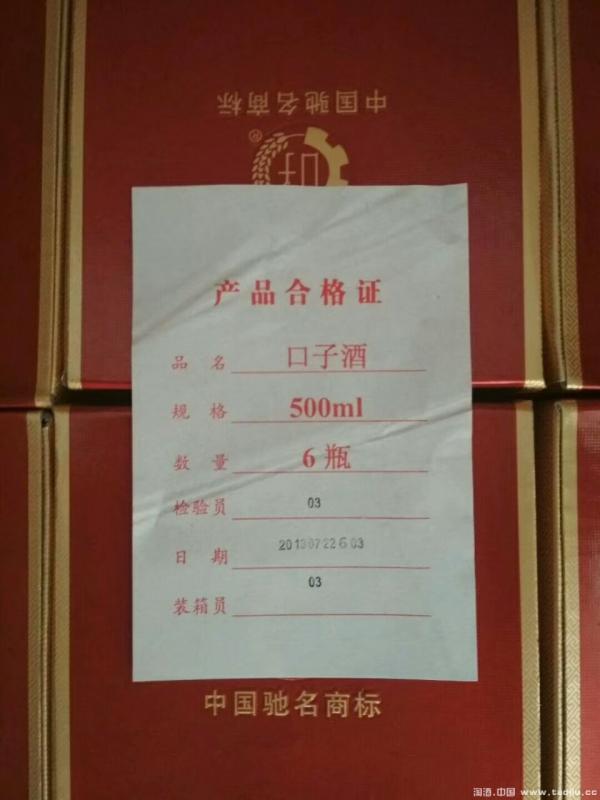 中国驰名商标
®
产品合格证
品名 口子酒
规格 500ml
数量 6瓶
检验员 03
日期 20130722603
装箱员 03
中国驰名商标
淘酒.中国 www.taojiu.cc